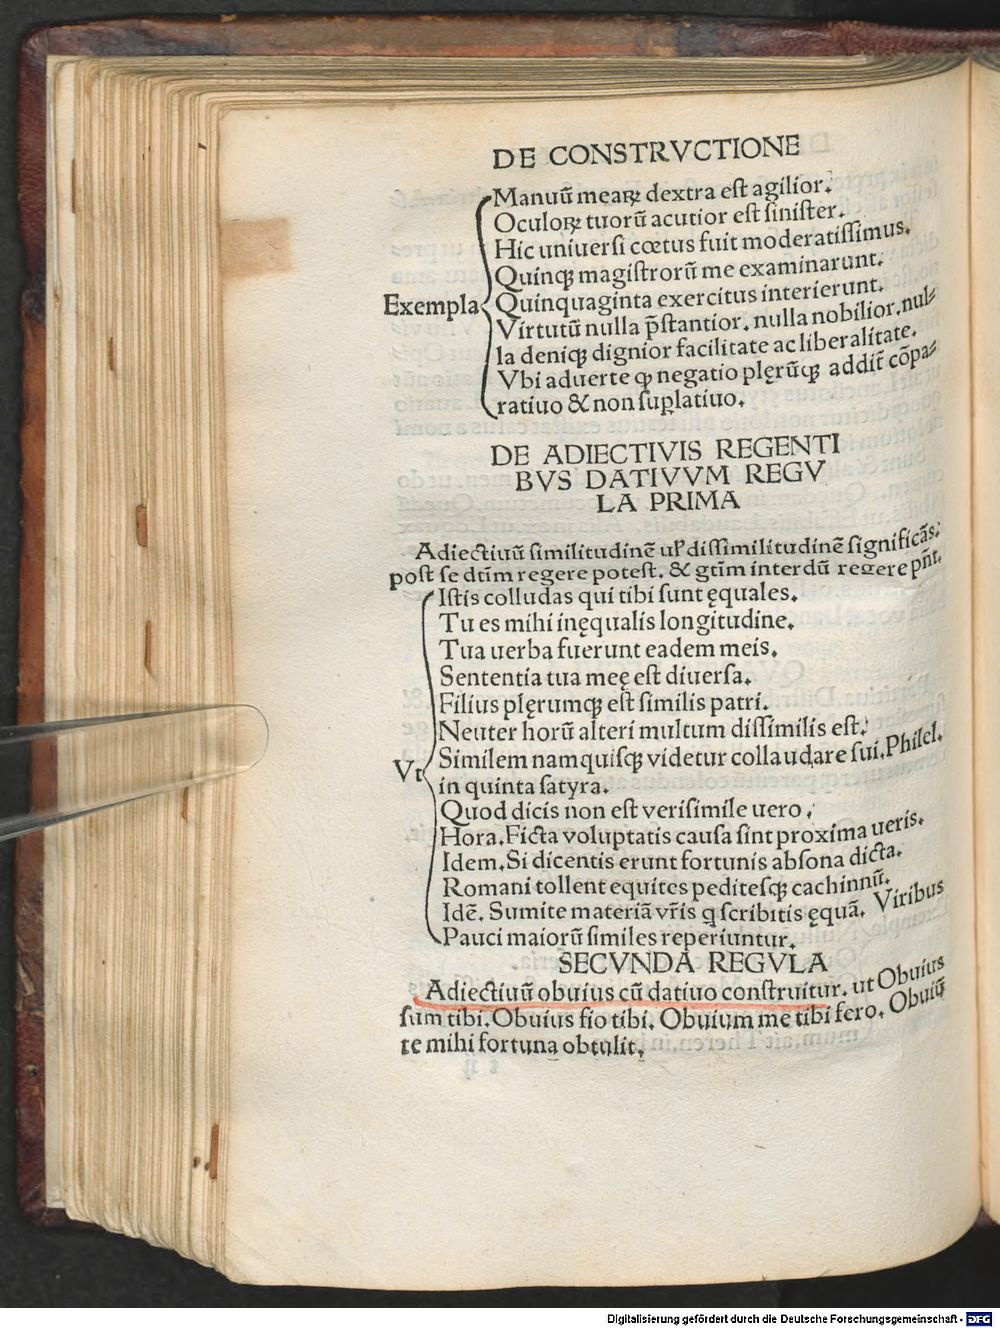 DE CONSTRVCTIONE
Manuū mearꝝ dextra est agilior.
Oculoꝝ tuorū acutior est sinister.
Hic uniuersi cœtus fuit moderatissimus.
Quinqꝫ magistrorū me examinarunt.
Exempla Quinquaginta exercitus interierunt.
Virtutū nulla p̄stantior. nulla nobilior. nul⸗
la deniqꝫ dignior facilitate ac liberalitate.
Vbi aduerte ꝙ negatio plęrūqꝫ addit̄ cōpa⸗
ratiuo & non suplatiuo.
DE ADIECTIVIS REGENTI
BVS DATIVVM REGV
LA PRIMA
Adiectiuū similitudinē ul' dissimilitudinē significās.
post se dtīm regere potest. & gtīm interdū regere pn̄t.
Istis colludas qui tibi sunt ęquales.
Tu es mihi inęqualis longitudine.
Tua uerba fuerunt eadem meis.
Sententia tua meę est diuersa.
Filius plęrumqꝫ est similis patri.
Neuter horū alteri multum dissimilis est.
Vt Similem nam quisqꝫ videtur collaudare sui. Philel.
in quinta satyra.
Quod dicis non est verisimile uero.
Hora. Ficta voluptatis causa sint proxima ueris.
Idem. Si dicentis erunt fortunis absona dicta.
Romani tollent equites peditesqꝫ cachinnū.
Idē. Sumite materiā vr̄is q scribitis ęquā. Viribus
Pauci maiorū similes reperiuntur.
SECVNDA REGVLA
Adiectiuū obuius cū datiuo construitur. ut Obuius
sum tibi. Obuius fio tibi. Obuium me tibi fero. Obuiū
te mihi fortuna obtulit.
Digitalisierung gefördert durch die Deutsche Forschungsgemeinschaft - DFG